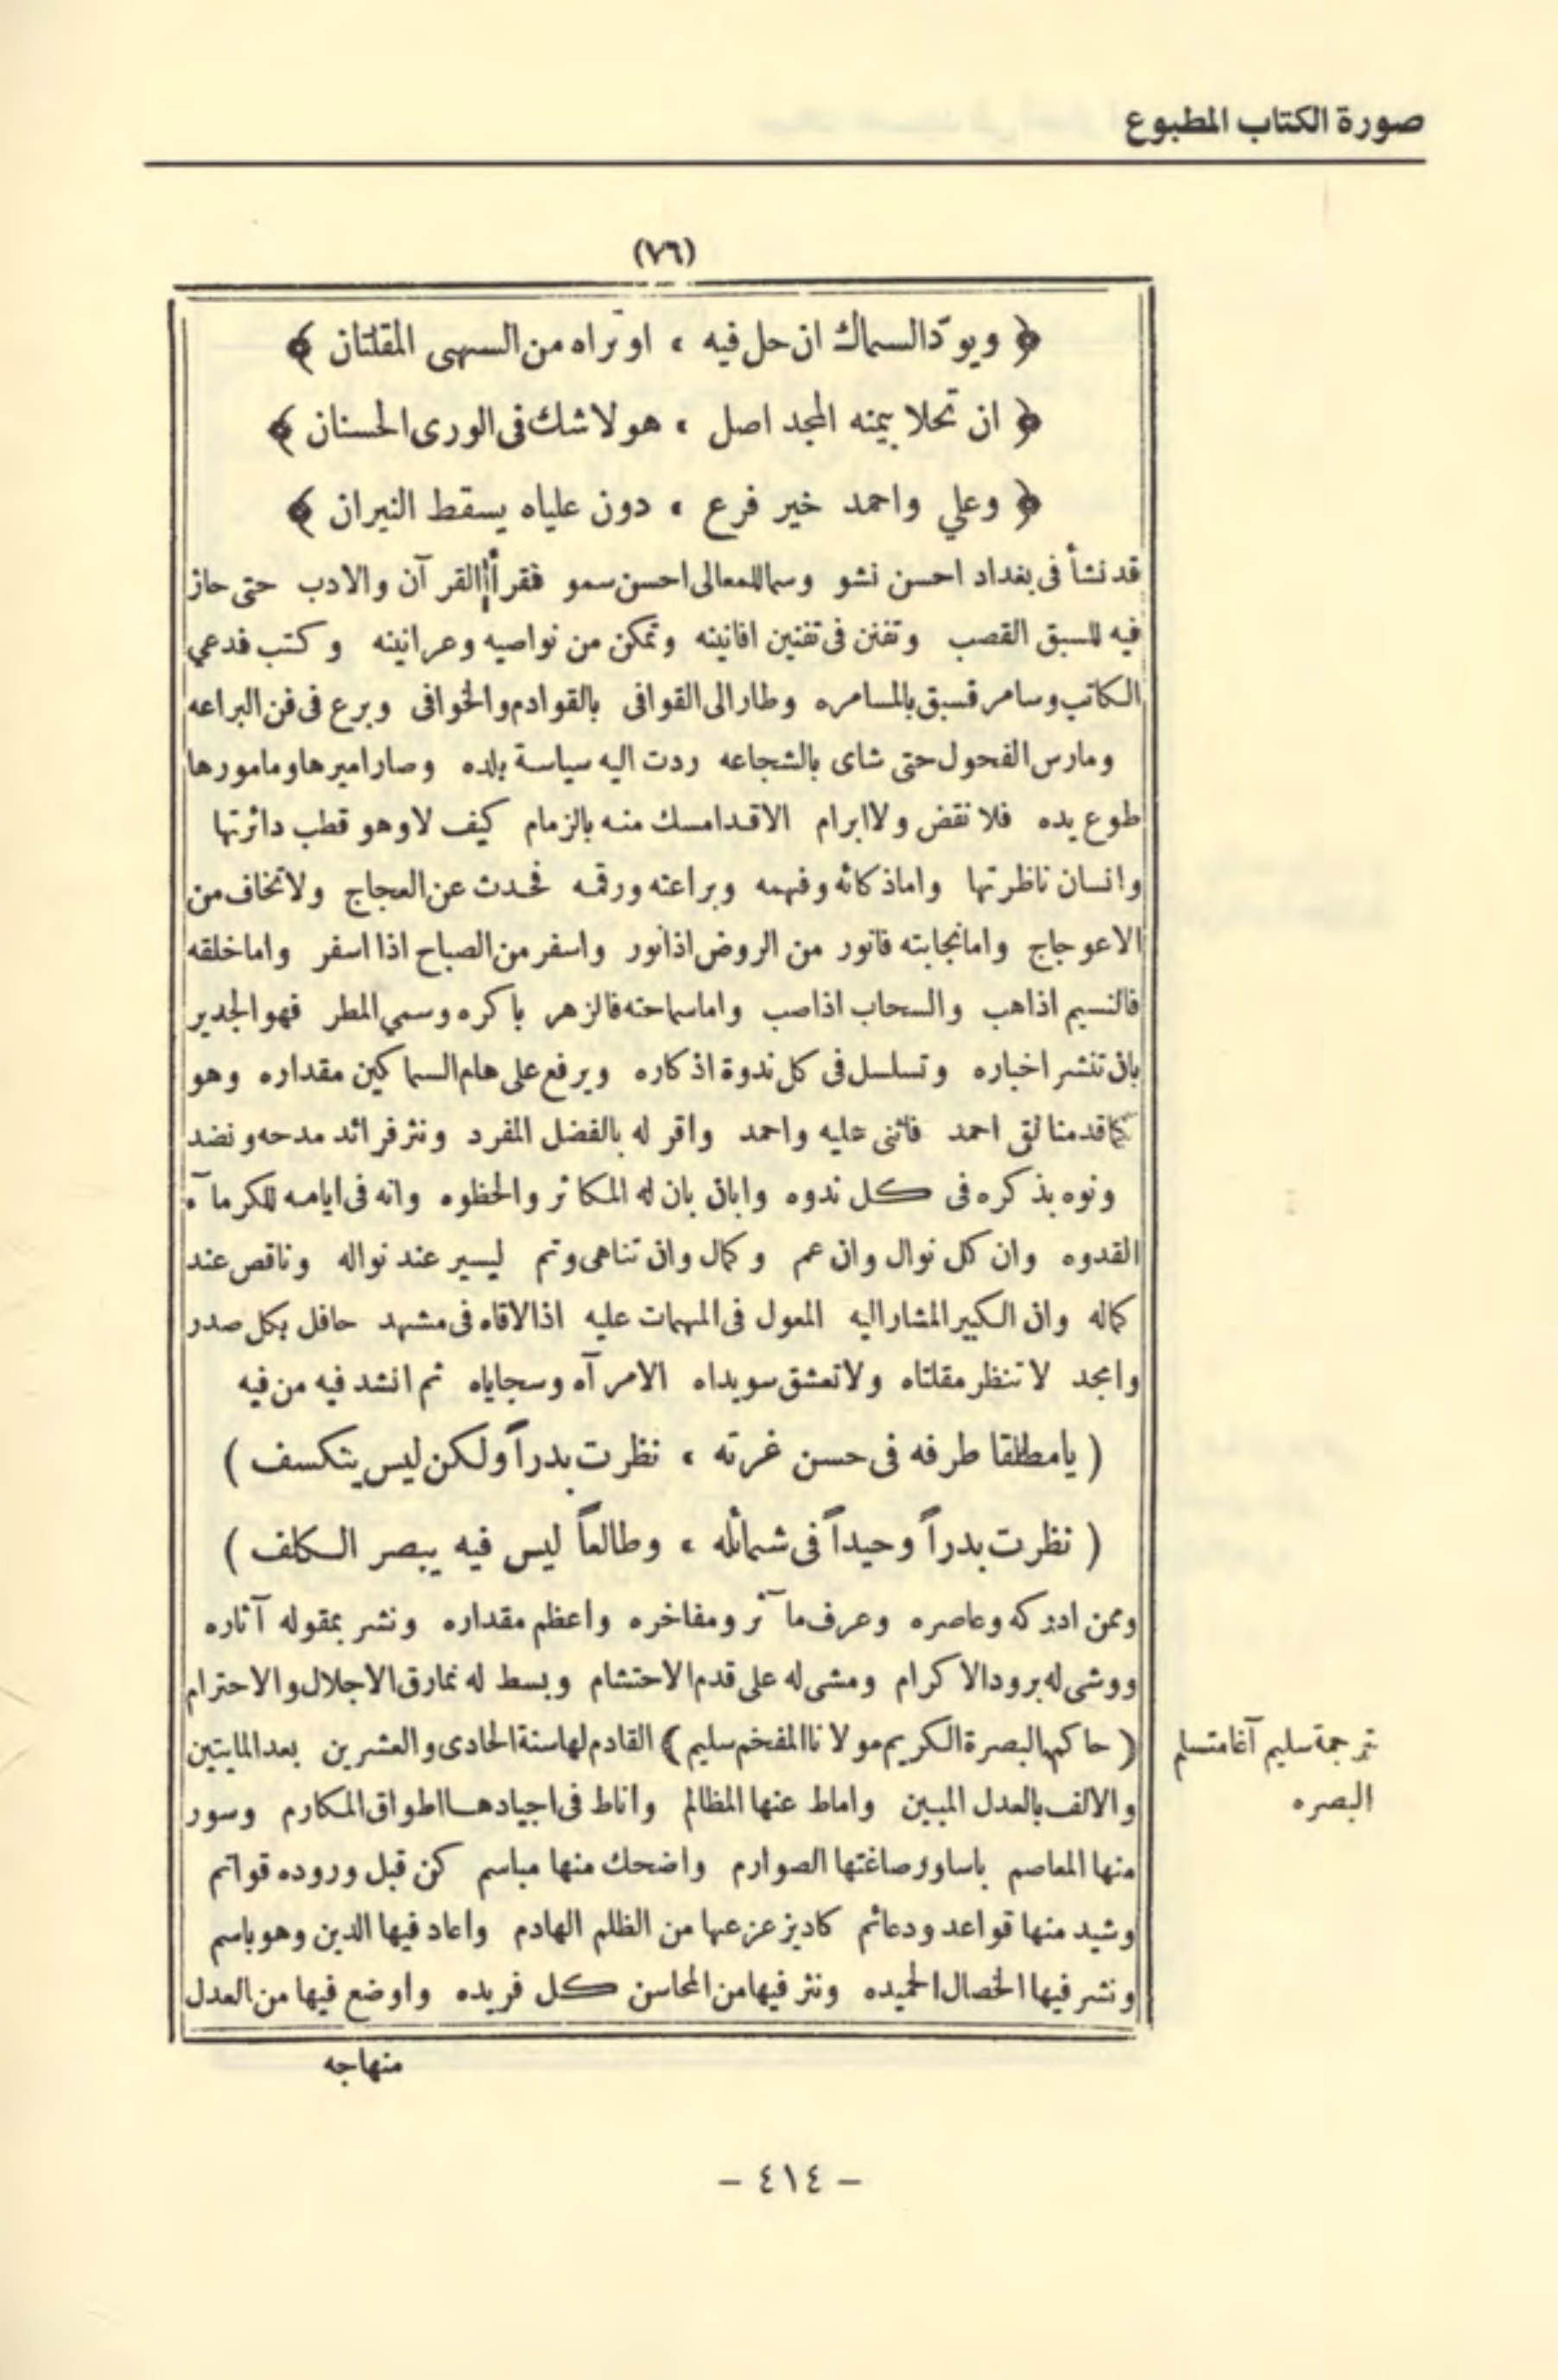 صورة الكتاب المطبوع
(٧٦)
﴿ ويودّ السماك ان حل فيه ، او تراه من السهى المقلتان ﴾
﴿ ان تحلا بيمنه المجد اصل ، هو لا شك فى الورى الحسنان ﴾
﴿ وعلي واحمد خير فرع ، دون علياه يسقط النيران ﴾
قد نشأ فى بغداد احسن نشو وسما للمعالى احسن سمو فقرأ القرآن والادب حتى حاز
فيه للسبق القصب وتفنن فى تفنين افانينه وتمكن من نواصيه وعرانينه وكتب فدعي
الكاتب وسامر فسبق بالمسامره وطار الى القوافى بالقوادم والخوافى وبرع فى فن البراعه
ومارس الفحول حتى شاى بالشجاعه ردت اليه سياسة بلده وصار اميرها ومامورها
طوع يده فلا نقض ولا ابرام الا قد امسك منه بالزمام كيف لا وهو قطب دائرتها
وانسان ناظرتها واما ذكائه وفهمه وبراعته ورقمه فحدث عن العجاج ولا تخاف من
الاعوجاج واما نجابته فانور من الروض اذا نور واسفر من الصباح اذا اسفر واما خلقه
فالنسيم اذا هب والسحاب اذا صب واما سماحته فالزهر باكره وسمي المطر فهو الجدير
بان تنشر اخباره وتسلسل فى كل ندوة اذكاره ويرفع على هام السماكين مقداره وهو
كما قدمنا لقى احمد فاثنى عليه واحمد واقر له بالفضل المفرد ونثر فرائد مدحه ونضد
ونوه بذكره فى كل ندوه وابان بان له المكاثر والحظوه وانه فى ايامه للكرماء
القدوه وان كل نوال وان عم وكمال وان تناهى وتم ليسير عند نواله وناقص عند
كماله وان الكبير المشار اليه المعول فى المهمات عليه اذا لاقاه فى مشهد حافل بكل صدر
وامجد لا تنظر مقلتاه ولا تعشق سويداه الا مرآه وسجاياه ثم انشد فيه من فيه
( يا مطلقا طرفه فى حسن غرته ، نظرت بدراً ولكن ليس ينكسف )
( نظرت بدراً وحيداً فى شمائله ، وطالعاً ليس فيه يبصر الكلف )
وممن ادركه وعاصره وعرف مآثر ومفاخره واعظم مقداره ونشر بمقوله آثاره
ووشى له برود الاكرام ومشى له على قدم الاحتشام وبسط له نمارق الاجلال والاحترام
( حاكم البصرة الكريم مولانا المفخم سليم ) القادم لها سنة الحادى والعشرين بعد المايتين
والالف بالعدل المبين واماط عنها المظالم واناط فى اجيادها اطواق المكارم وسور
منها المعاصم باساور صاغتها الصوارم واضحك منها مباسم كن قبل وروده قواتم
وشيد منها قواعد ودعائم كاد يزعزعها من الظلم الهادم واعاد فيها الدين وهو باسم
ونشر فيها الخصال الحميده ونثر فيها من المحاسن كل فريده واوضع فيها من العدل
ترجمة سليم آغا متسلم
البصره
منهاجه
- ٤١٤ -